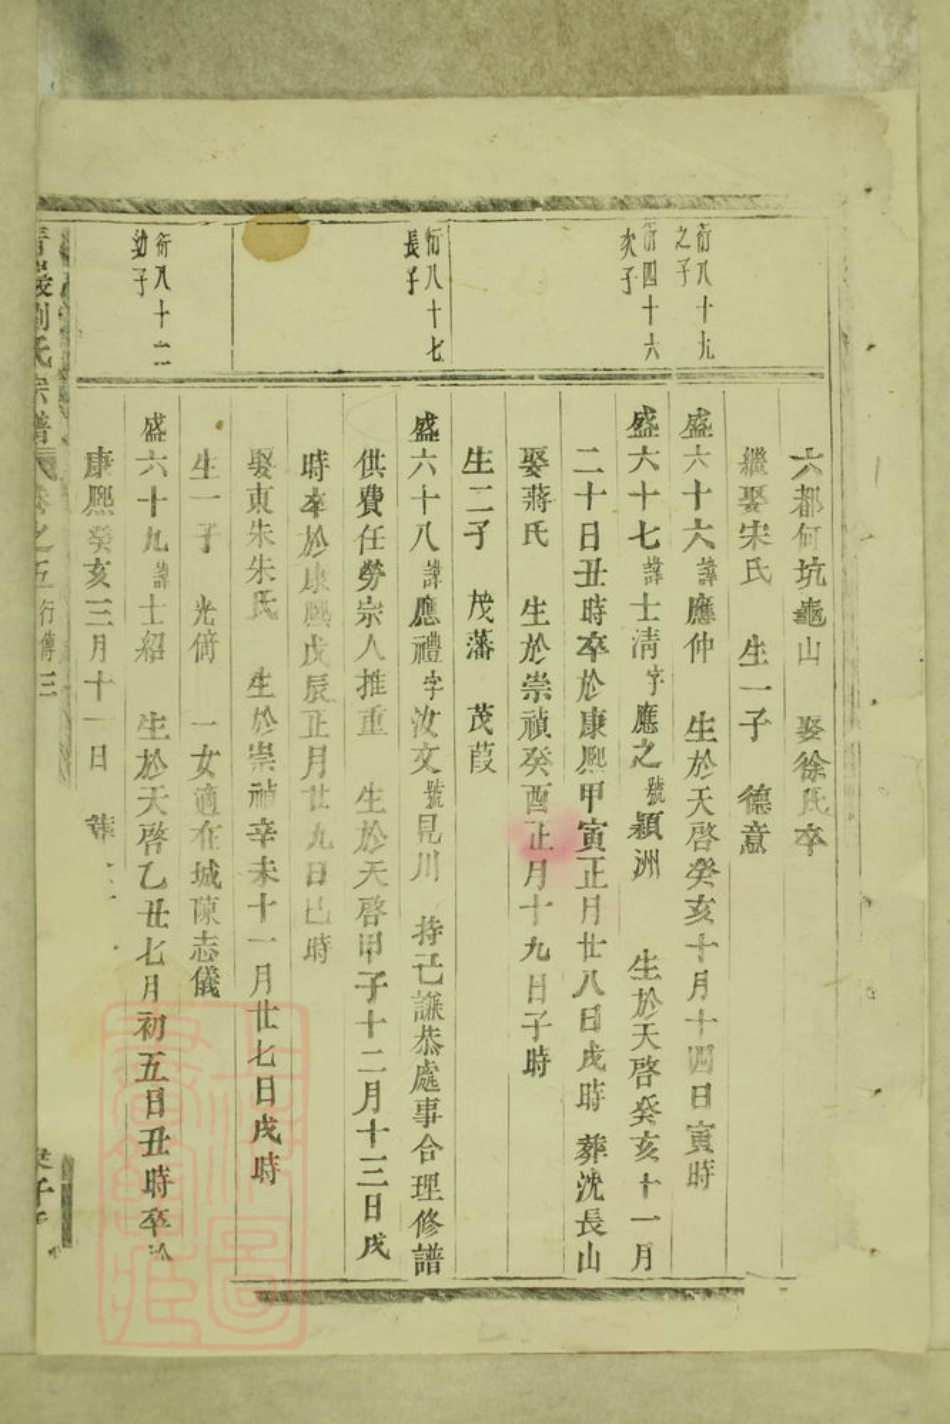 衍八十九
之子
衍四十六
次子
衍八十七
長子
衍八十二
幼子
六都何坑龜山 娶徐氏卒
繼娶宋氏 生一子 德意
盛六十六諱應仲 生於天啓癸亥十月十四日寅時
盛六十七諱士清字應之號穎洲 生於天啓癸亥十一月
二十日丑時卒於康熙甲寅正月廿八日戌時 葬沈長山
娶蔣氏 生於崇禎癸酉正月十九日子時
生二子 茂藩 茂葭
盛六十八諱應禮字汝文號見川 持己謙恭處事合理修譜
供費任勞宗人推重 生於天啓甲子十二月十三日戌
時卒於康熙戊辰正月廿九日巳時
娶東朱朱氏 生於崇禎辛未十一月廿七日戌時
生一子 光倚 一女適在城陳志儀
盛六十九諱士紹 生於天啓乙丑七月初五日丑時卒於
康熙癸亥三月十一日 葬
劉氏宗譜 卷之五 行傳 三